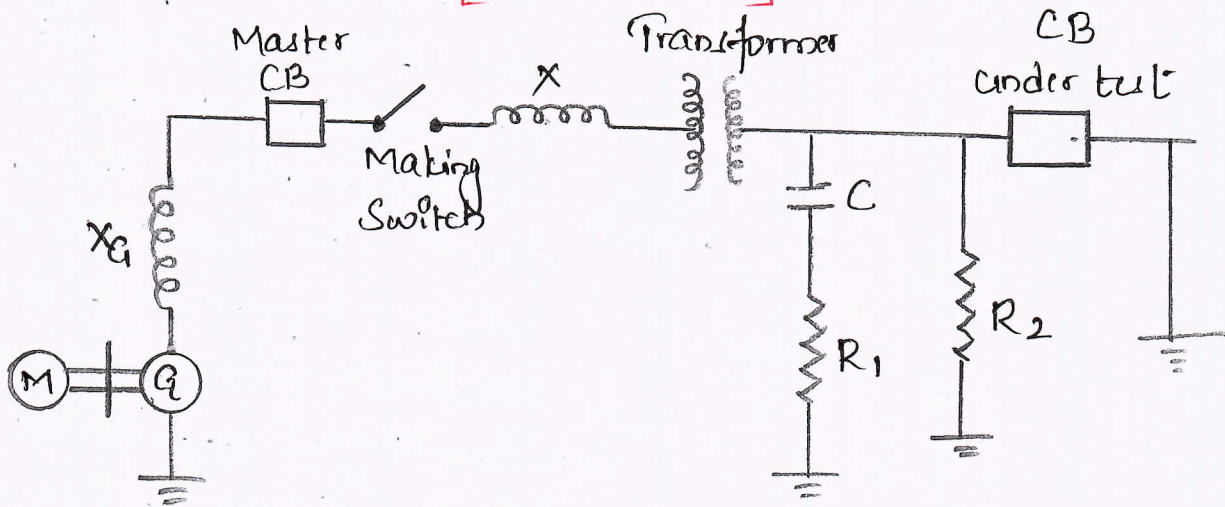 Master
CB
Making
Switch
X
Transformer
CB
under test
XG
M
G
C
R1
R2